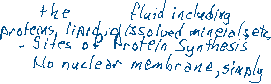 the fluid including
proteins, lipid, dissolved minerals, etc.
- Sites of Protein Synthesis
No nuclear membrane, simply